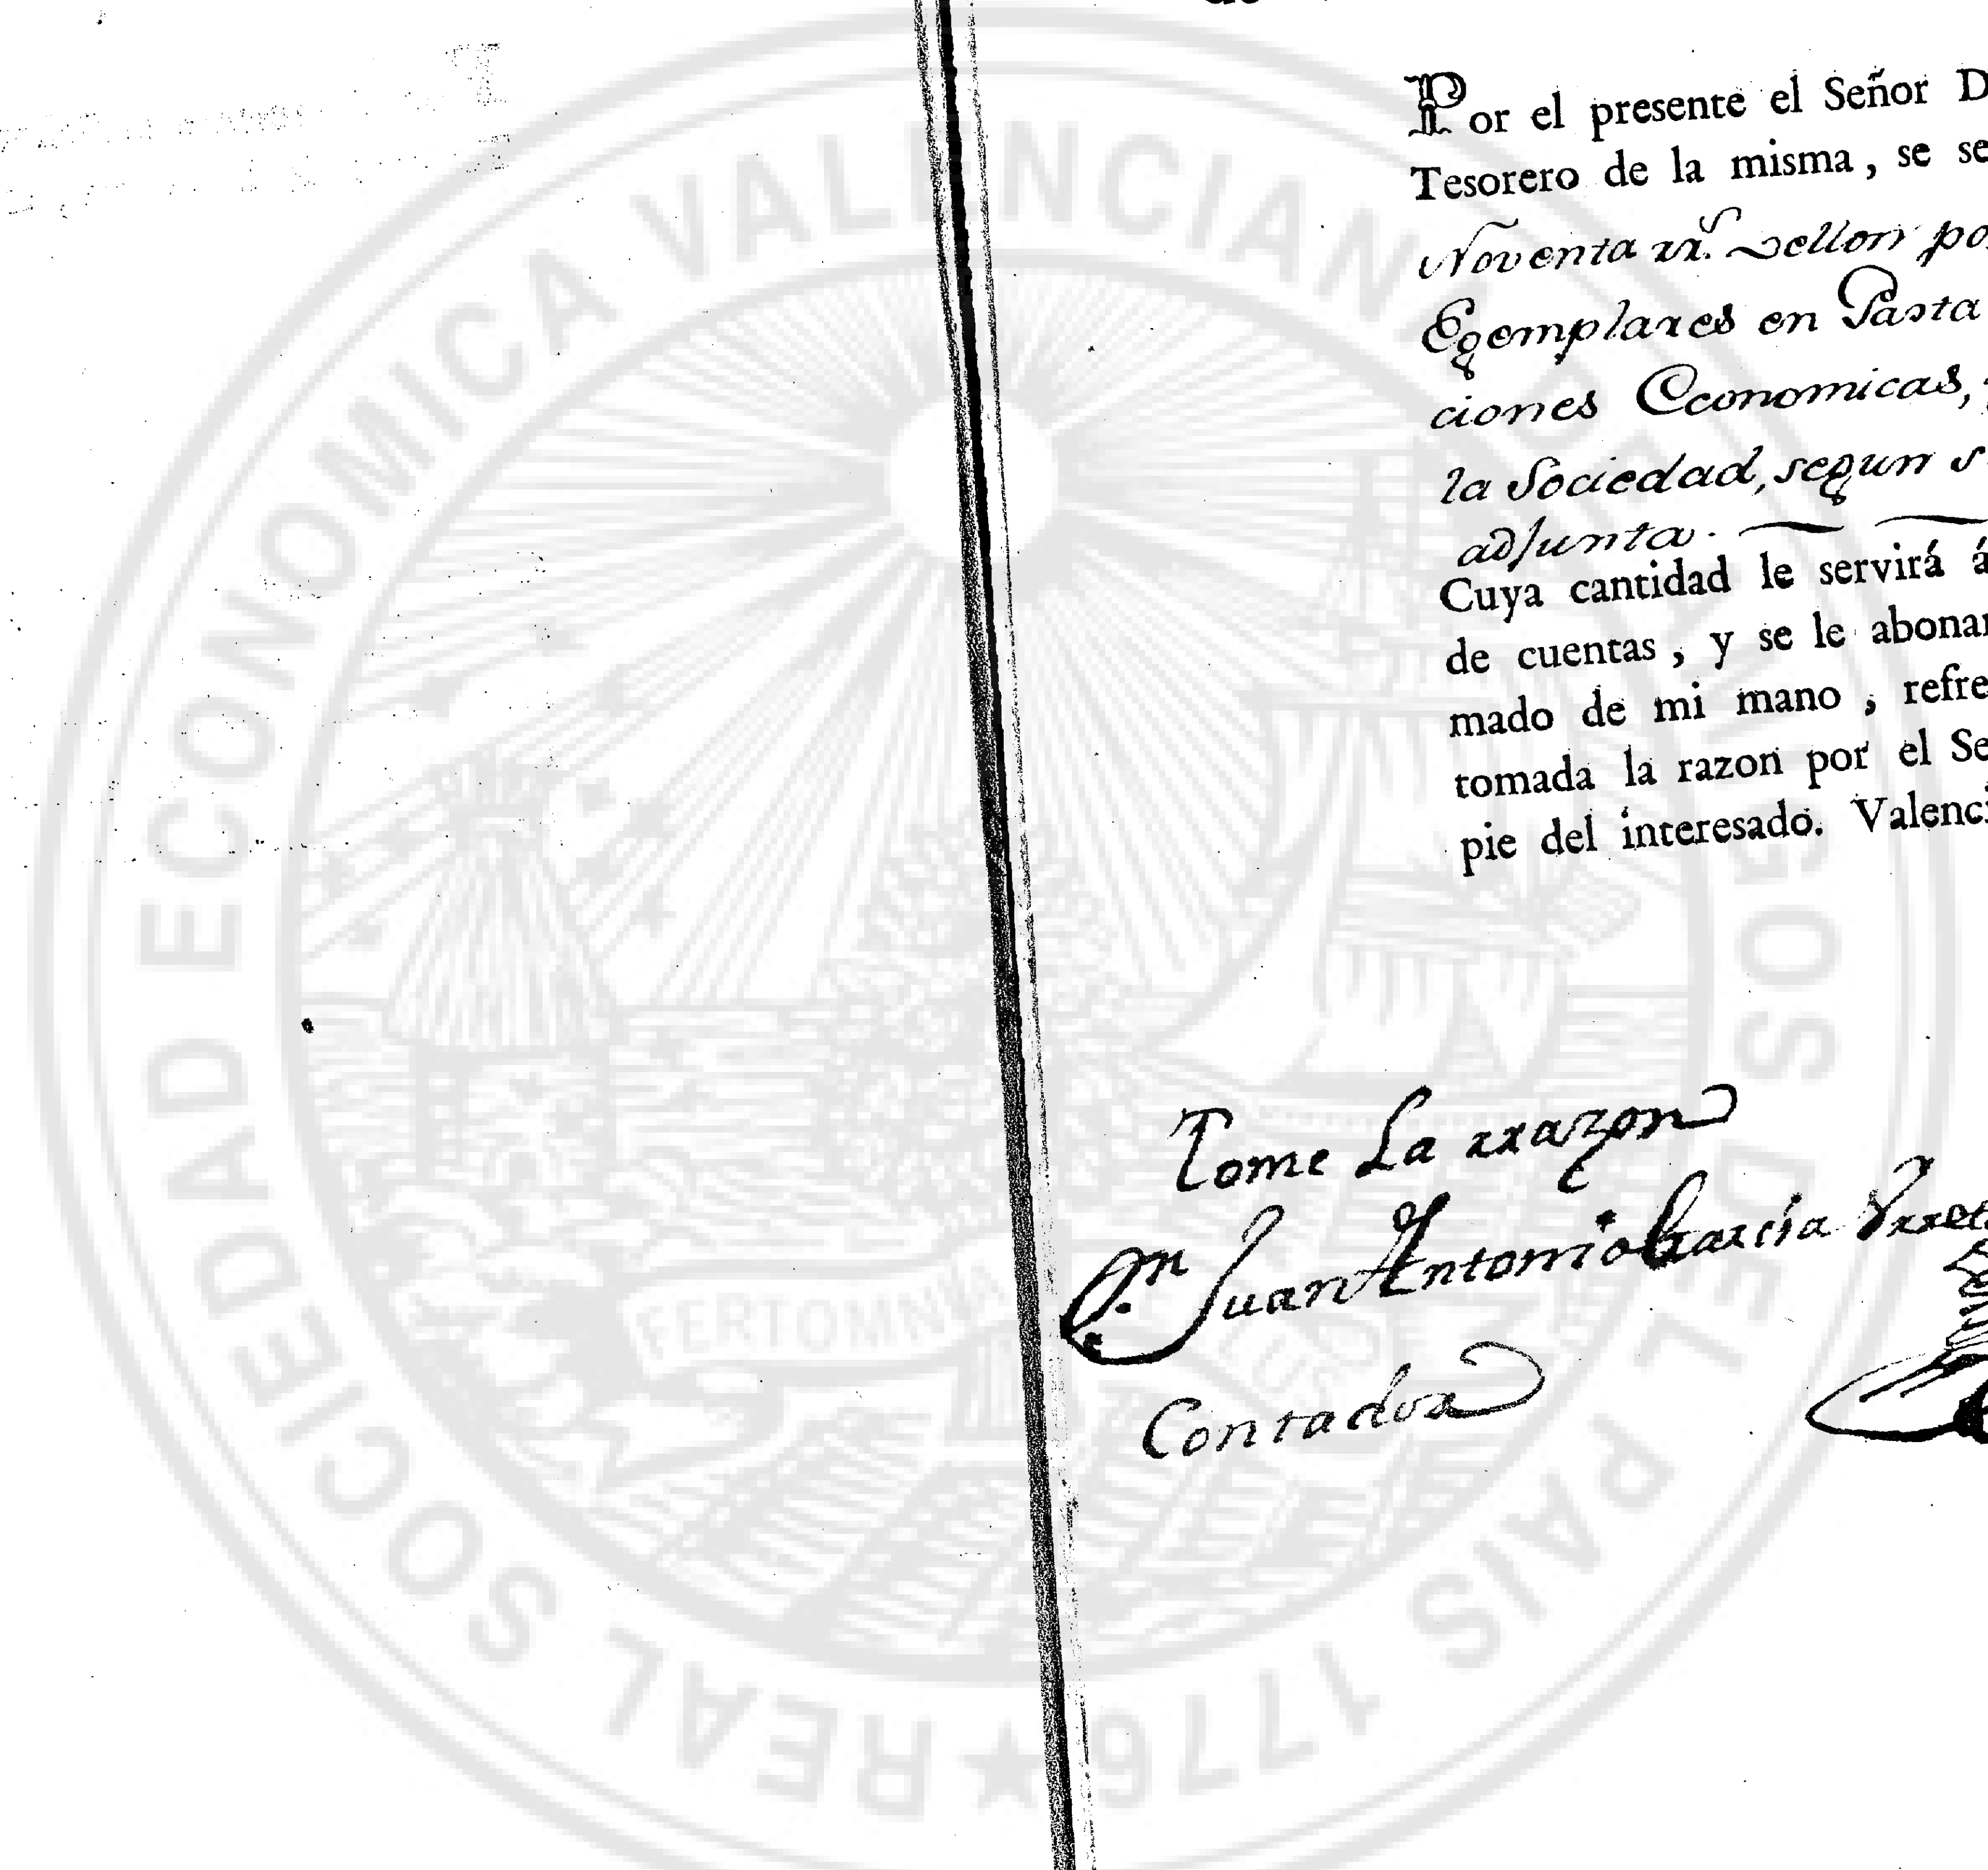 de
Por el presente el Señor D
Tesorero de la misma, se se
Noventa rr.s vellon po
Egemplares en Pasta
ciones Economicas,
la Sociedad, segun s
adjunta.
Cuya cantidad le servirá á
de cuentas, y se le abona
mado de mi mano, refre
tomada la razon por el Se
pie del interesado. Valenci
Tome La rrazon
Dn. Juan Antonio Garcia Urret
Contador
REAL SOCIEDAD ECONOMICA VALENCIANA DE AMIGOS DEL PAIS 1776